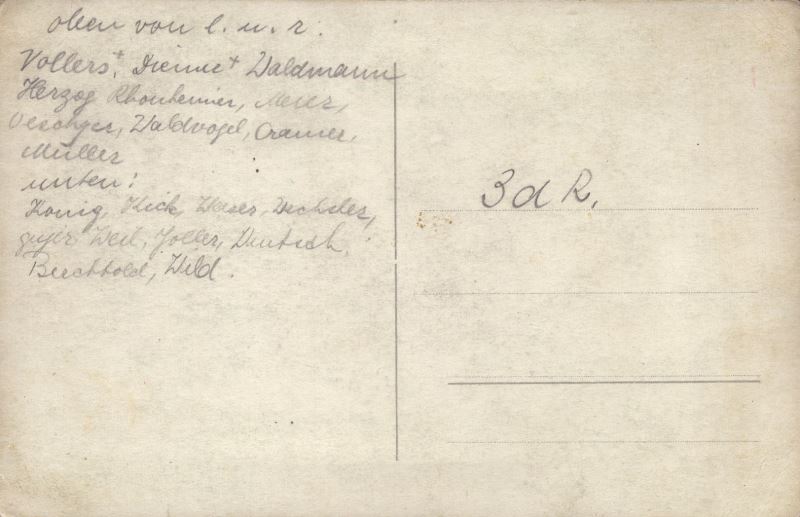 oben von l. n. r.
Vollers+, Dieme+ Waldmann
Herzog Rhonheimer, Meier,
Oeschger, Waldvogel, Cramer,
Müller
unten:
König, Kick, Weser, Dechsler,
Weil, Zoller, Deutsch,
Berchtold, Wild.
3 d R.